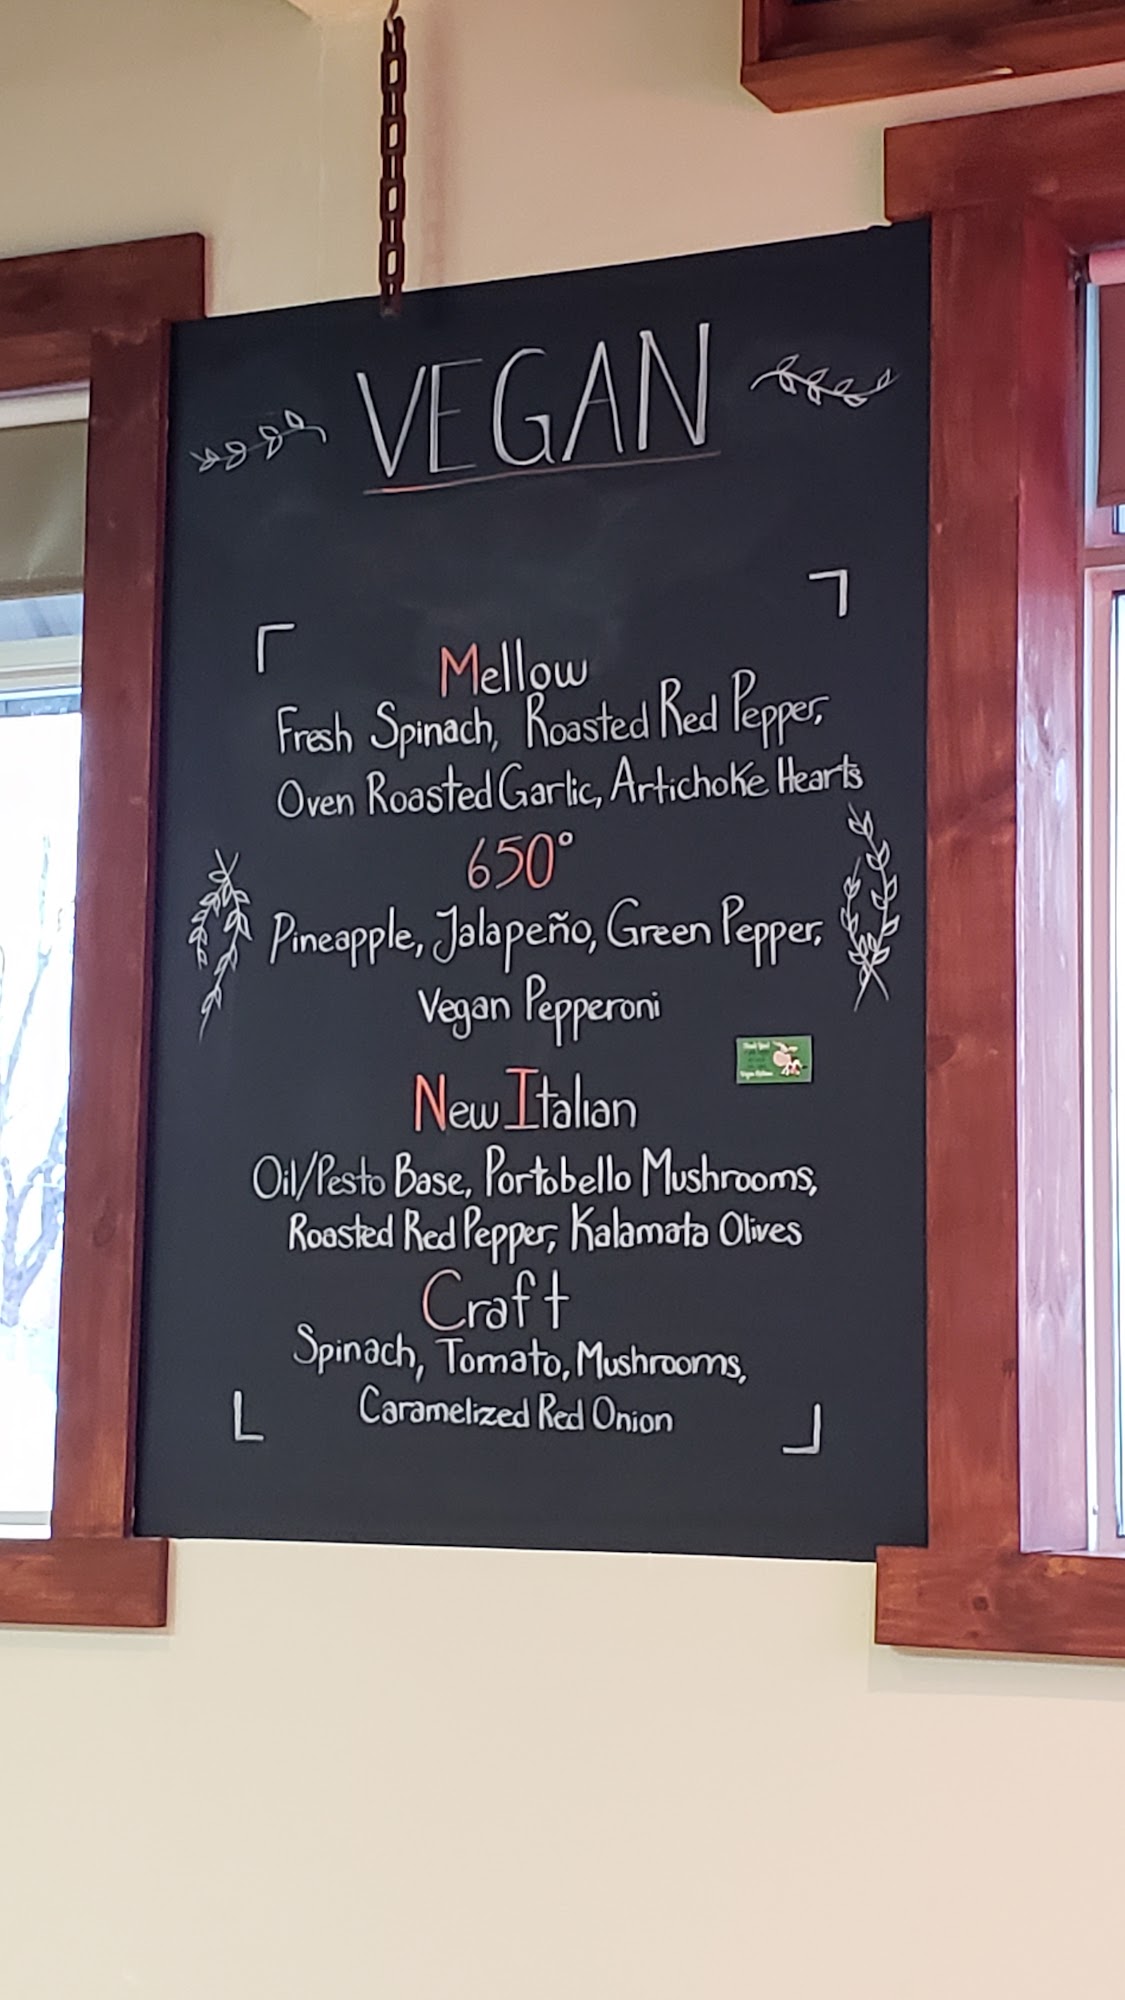 VEGAN
Mellow
Fresh Spinach, Roasted Red Pepper,
Oven Roasted Garlic, Artichoke Hearts
650°
Pineapple, Jalapeño, Green Pepper,
Vegan Pepperoni
New Italian
Oil/Pesto Base, Portobello Mushrooms,
Roasted Red Pepper, Kalamata Olives
Craft
Spinach, Tomato, Mushrooms,
Caramelized Red Onion